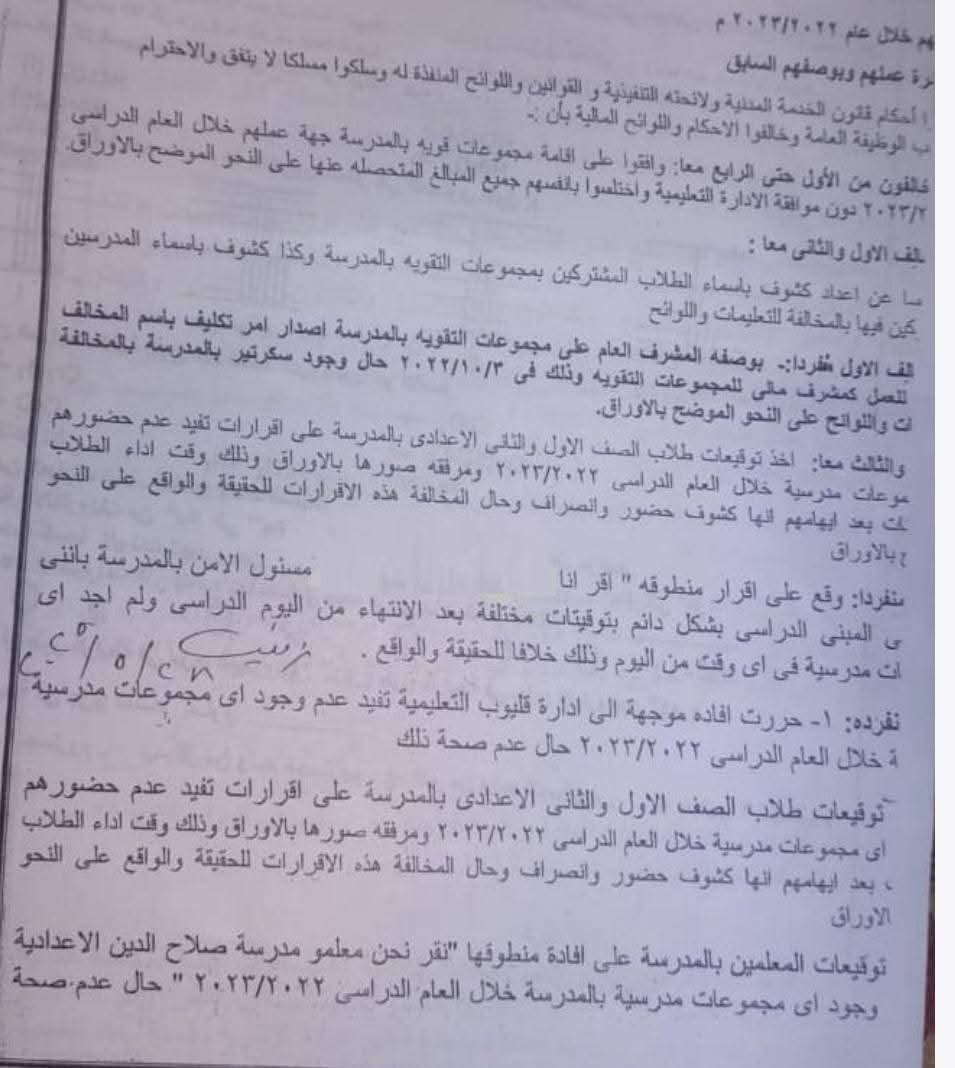 هم خلال عام ٢٠٢٣/٢٠٢٢ م
رة عملهم وبوصفهم السابق
ا أحكام قانون الخدمة المدنية ولائحته التنفيذية و القوانين واللوائح المنفذة له وسلكوا مسلكا لا يتفق والاحترام
ب الوظيفة العامة وخالفوا الاحكام واللوائح المالية بأن :-
خالفون من الأول حتى الرابع معا: وافقوا على اقامة مجموعات تقويه بالمدرسة جهة عملهم خلال العام الدراسى
٢٠٢٣/٢ دون موافقة الادارة التعليمية واختلسوا بانفسهم جميع المبالغ المتحصله عنها على النحو الموضح بالاوراق.
الف الاول والثانى معا :
سا عن اعداد كشوف باسماء الطلاب المشتركين بمجموعات التقويه بالمدرسة وكذا كشوف باسماء المدرسين
كين فيها بالمخالفة للتعليمات واللوائح
الف الاول منفردا:- بوصفه المشرف العام على مجموعات التقويه بالمدرسة اصدار امر تكليف باسم المخالف
للعمل كمشرف مالى للمجموعات التقويه وذلك فى ٢٠٢٢/١٠/٣ حال وجود سكرتير بالمدرسة بالمخالفة
ات واللوائح على النحو الموضح بالاوراق.
والثالث معا: اخذ توقيعات طلاب الصف الاول والثانى الاعدادى بالمدرسة على اقرارات تفيد عدم حضورهم
موعات مدرسية خلال العام الدراسى ٢٠٢٣/٢٠٢٢ ومرفقه صورها بالاوراق وذلك وقت اداء الطلاب
ات بعد ايهامهم انها كشوف حضور وانصراف وحال المخالفة هذه الاقرارات للحقيقة والواقع على النحو
ح بالاوراق
منفردا: وقع على اقرار منطوقه " اقر انا مسئول الامن بالمدرسة باننى
ى المبنى الدراسى بشكل دائم بتوقيتات مختلفة بعد الانتهاء من اليوم الدراسى ولم اجد اى
ات مدرسية فى اى وقت من اليوم وذلك خلافا للحقيقة والواقع .
نفرده: ١- حررت افاده موجهة الى ادارة قليوب التعليمية تفيد عدم وجود اى مجموعات مدرسية
ة خلال العام الدراسى ٢٠٢٣/٢٠٢٢ حال عدم صحة ذلك
توقيعات طلاب الصف الاول والثانى الاعدادى بالمدرسة على اقرارات تفيد عدم حضورهم
اى مجموعات مدرسية خلال العام الدراسى ٢٠٢٣/٢٠٢٢ ومرفقه صورها بالاوراق وذلك وقت اداء الطلاب
، بعد ايهامهم انها كشوف حضور وانصراف وحال المخالفة هذه الاقرارات للحقيقة والواقع على النحو
الاوراق
توقيعات المعلمين بالمدرسة على افادة منطوقها "نقر نحن معلمو مدرسة صلاح الدين الاعدادية
وجود اى مجموعات مدرسية بالمدرسة خلال العام الدراسى ٢٠٢٣/٢٠٢٢ " حال عدم صحة